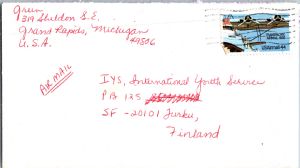 Green
319 Sheldon S.E.
Grand Rapids, Michigan
49506
U.S.A.
AIR MAIL
IYS, International Youth Service
PB 125
SF-20101 Turku,
Finland
USAirmail 44